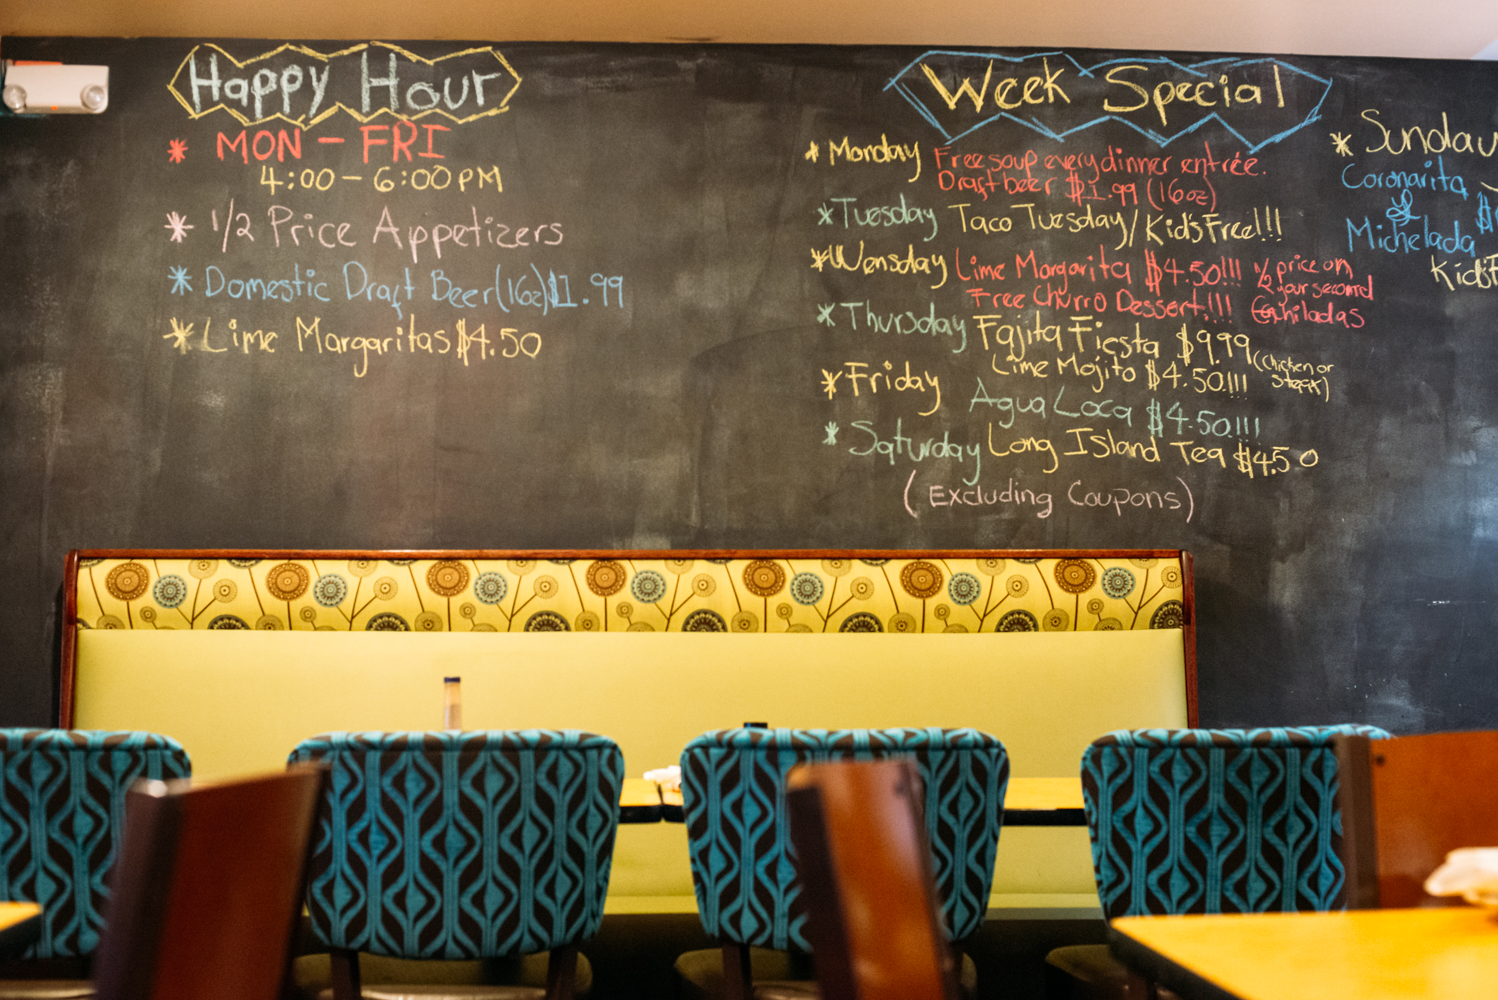 Happy Hour
* MON - FRI
4:00 - 6:00 PM
* 1/2 Price Appetizers
* Domestic Draft Beer (16oz) $1.99
* Lime Margaritas $4.50
Week Special
* Monday Free soup every dinner entrée.
Draft beer $1.99 (16oz)
* Tuesday Taco Tuesday / Kid's Free!!!
* Wensday Lime Margarita $4.50!!! 1/2 price on
your second
Free Churro Dessert!!! Enhiladas
* Thursday Fajita Fiesta $9.99 (Chicken or
Steak)
Lime Mojito $4.50!!!
* Friday Agua Loca $4.50!!!
* Saturday Long Island Tea $4.50
(Excluding Coupons)
* Sunday
Coronarita
&
Michelada
Kid's